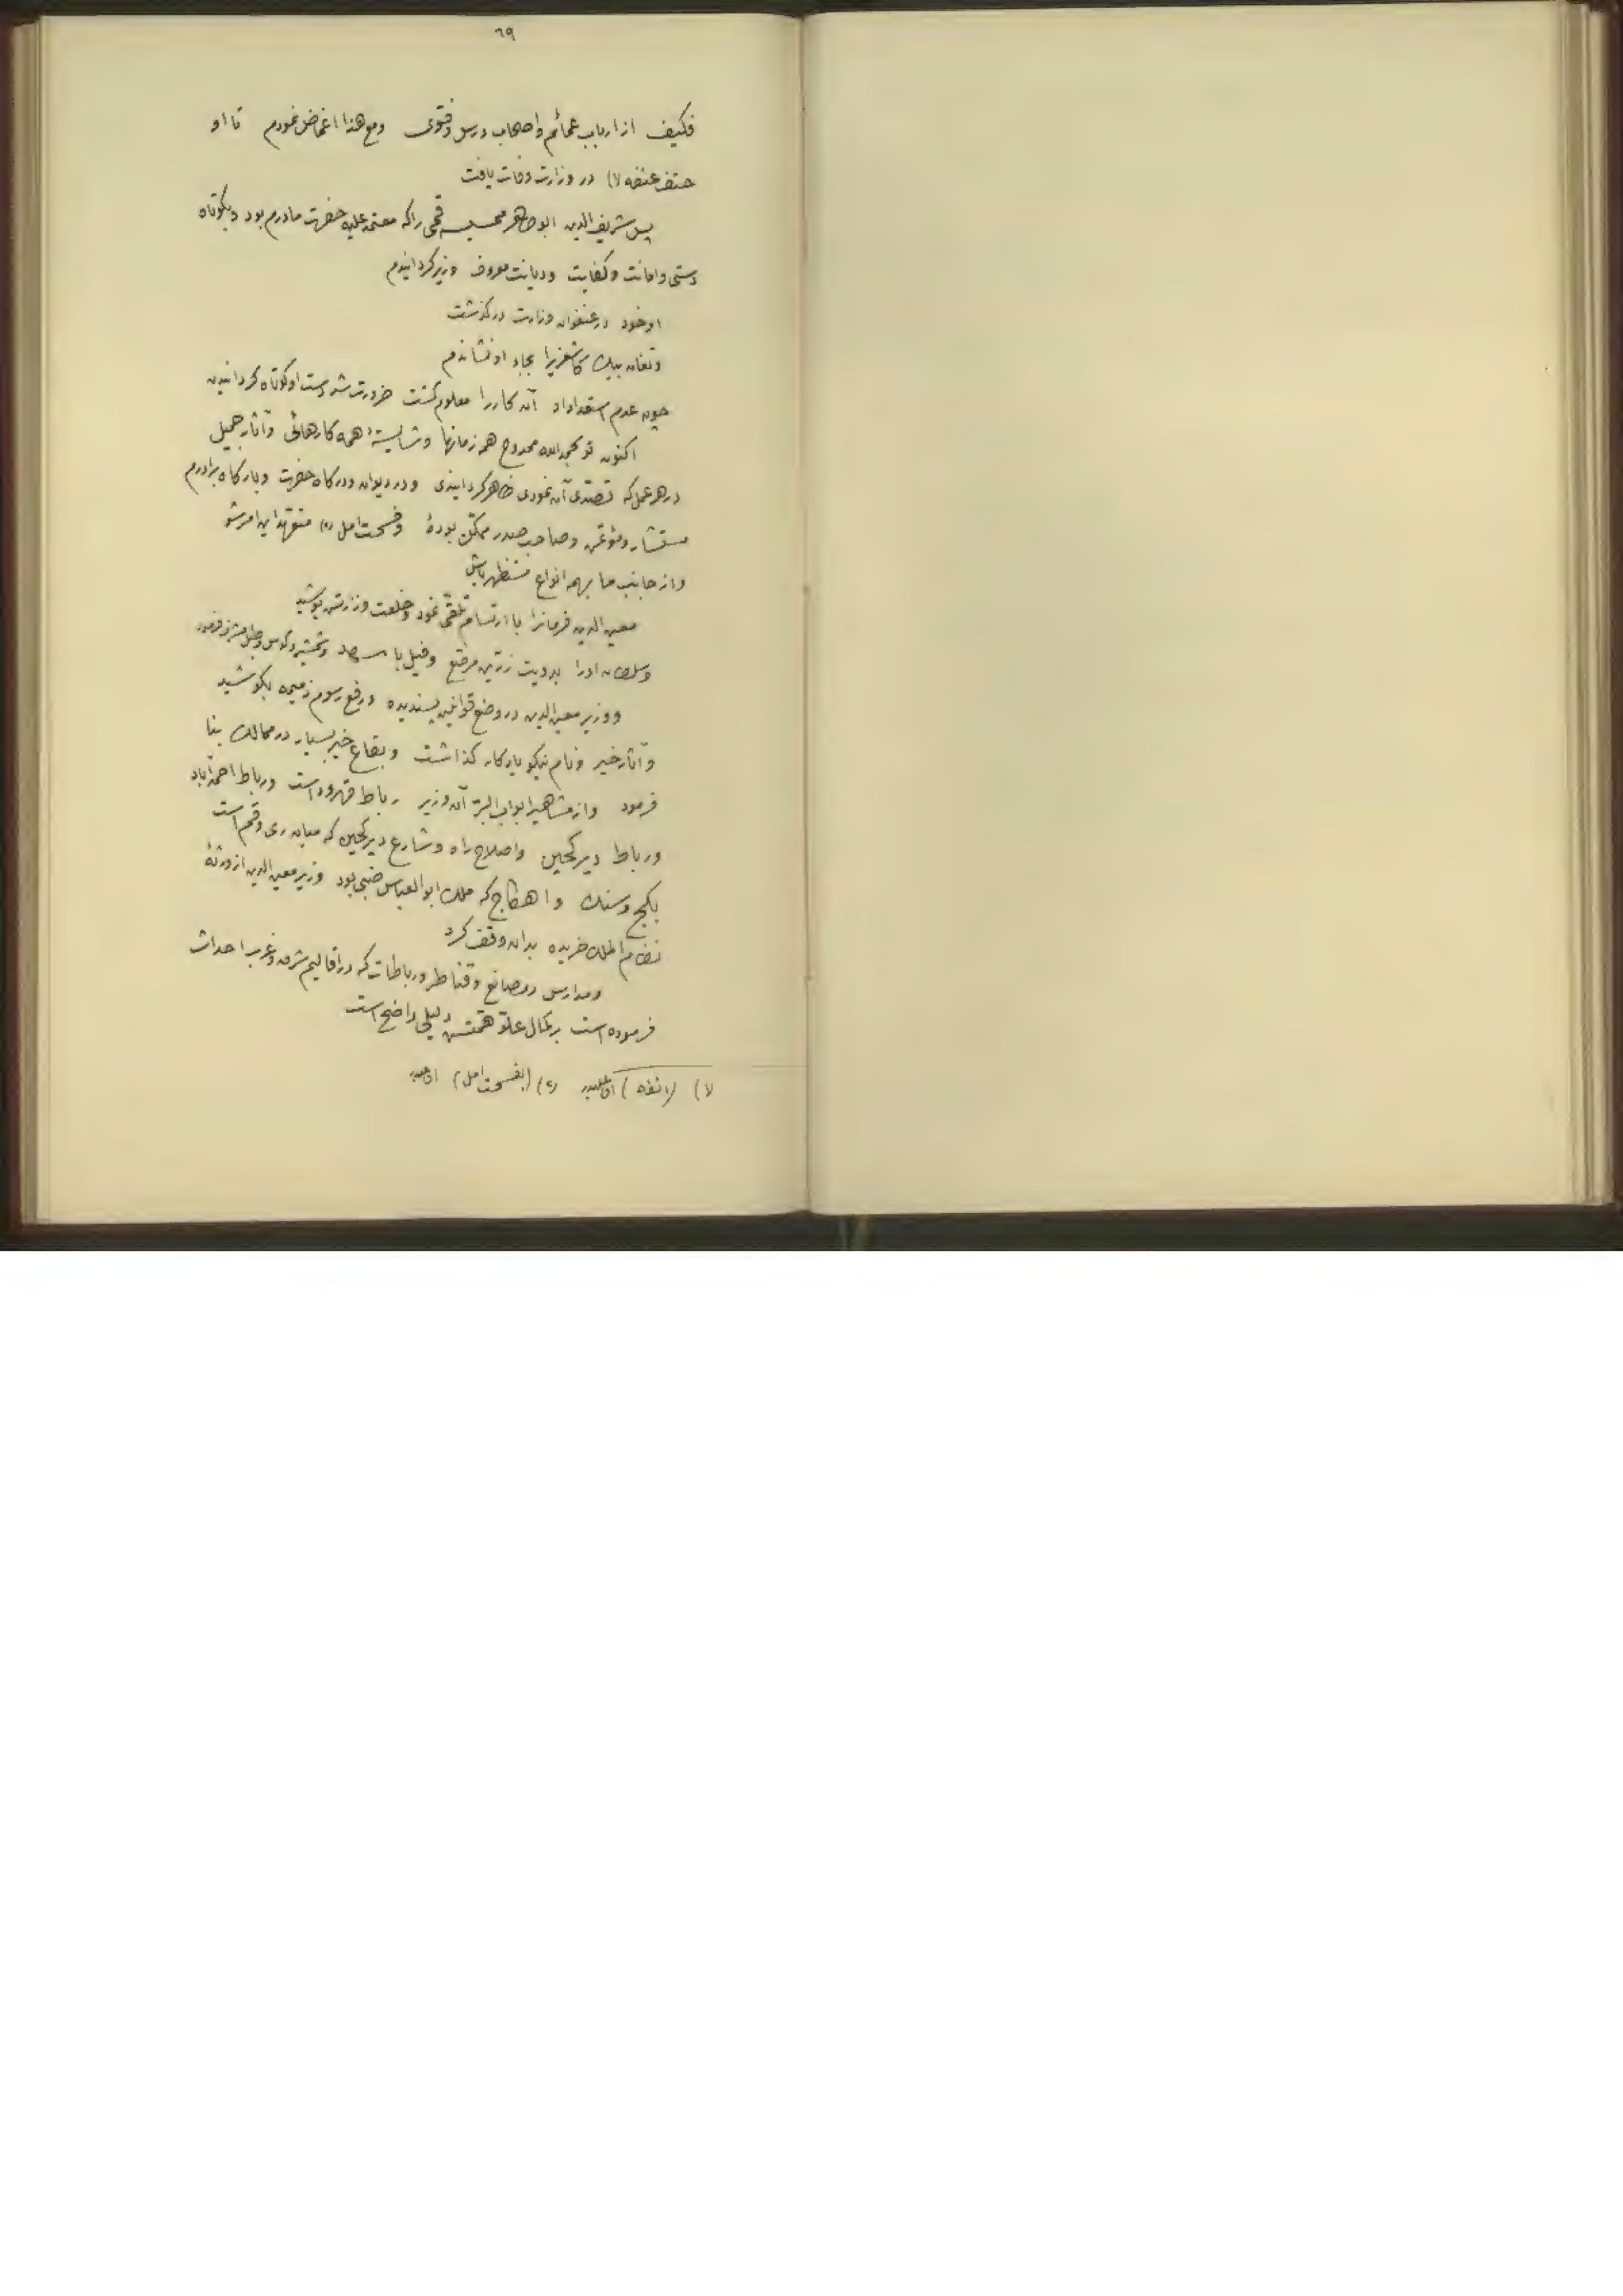 ٦٩
فکیف از ارباب عمائم و اصحاب درس و فتوی ومع هذا اغماض نمودم تا او
حتف عنفه (١) در وزارت وفات یافت
پس شریف الدین ابو طاهر قمی را که معتمد علیه حضرت مادرم بود و بکوتاه
دستی و امانت و کفایت و دیانت معروف وزیر گردانیدم
او خود در عنفوان وزارت درگذشت
وتغان بیک کاشغریرا بجاء او نشاندم
چون عدم استعداد او آن کار را معلوم گشت ضرورت شد دست او کوتاه گردانیدن
اکنون تو بحمد الله ممدوح همه زمانها و شایستهٔ همه کارهائی و آثار جمیل
در هر عمل که تصدی آن نمودی ظاهر گردانیدی و در دیوان و درگاه حضرت و بارگاه برادرم
مستشار و مؤتمن و صاحب صدر ممکن بودهٔ وفسحت امل (٢) متعهد این امر شو
و از جانب ما بهمه انواع مستظهر باش
معین الدین فرمانرا با ارتسام تلقی نمود و خلعت وزارتش پوشید
وسلطان او را بدویت زرین مرصع وفیل با مهد و شمشیر و کوس و طبل مشرف فرمود
ووزیر معین الدین در وضع قوانین پسندیده و رفع رسوم ذمیمه بکوشید
و آثار خیر و نام نیکو یادگار گذاشت و بقاع خیر بسیار در ممالک بنا
فرمود و از مشاهیر ابواب البر آن وزیر رباط قهرود است و رباط احمدآباد
و رباط دیر کجین و اصلاح راه و شارع دیر کجین که میان ری و قم است
بگچ و سنگ و اهکاج که ملک ابو العباس ضبی بود وزیر معین الدین از ورثهٔ
نظام الملک خریده بدان وقف کرد
و مدارس و مصانع و قناطر و رباطات که در اقالیم شرق و غرب احداث
فرموده است بر کمال علو همتش دلیلی واضح است
(١) (انفه) (٢) (بفسحت امل)